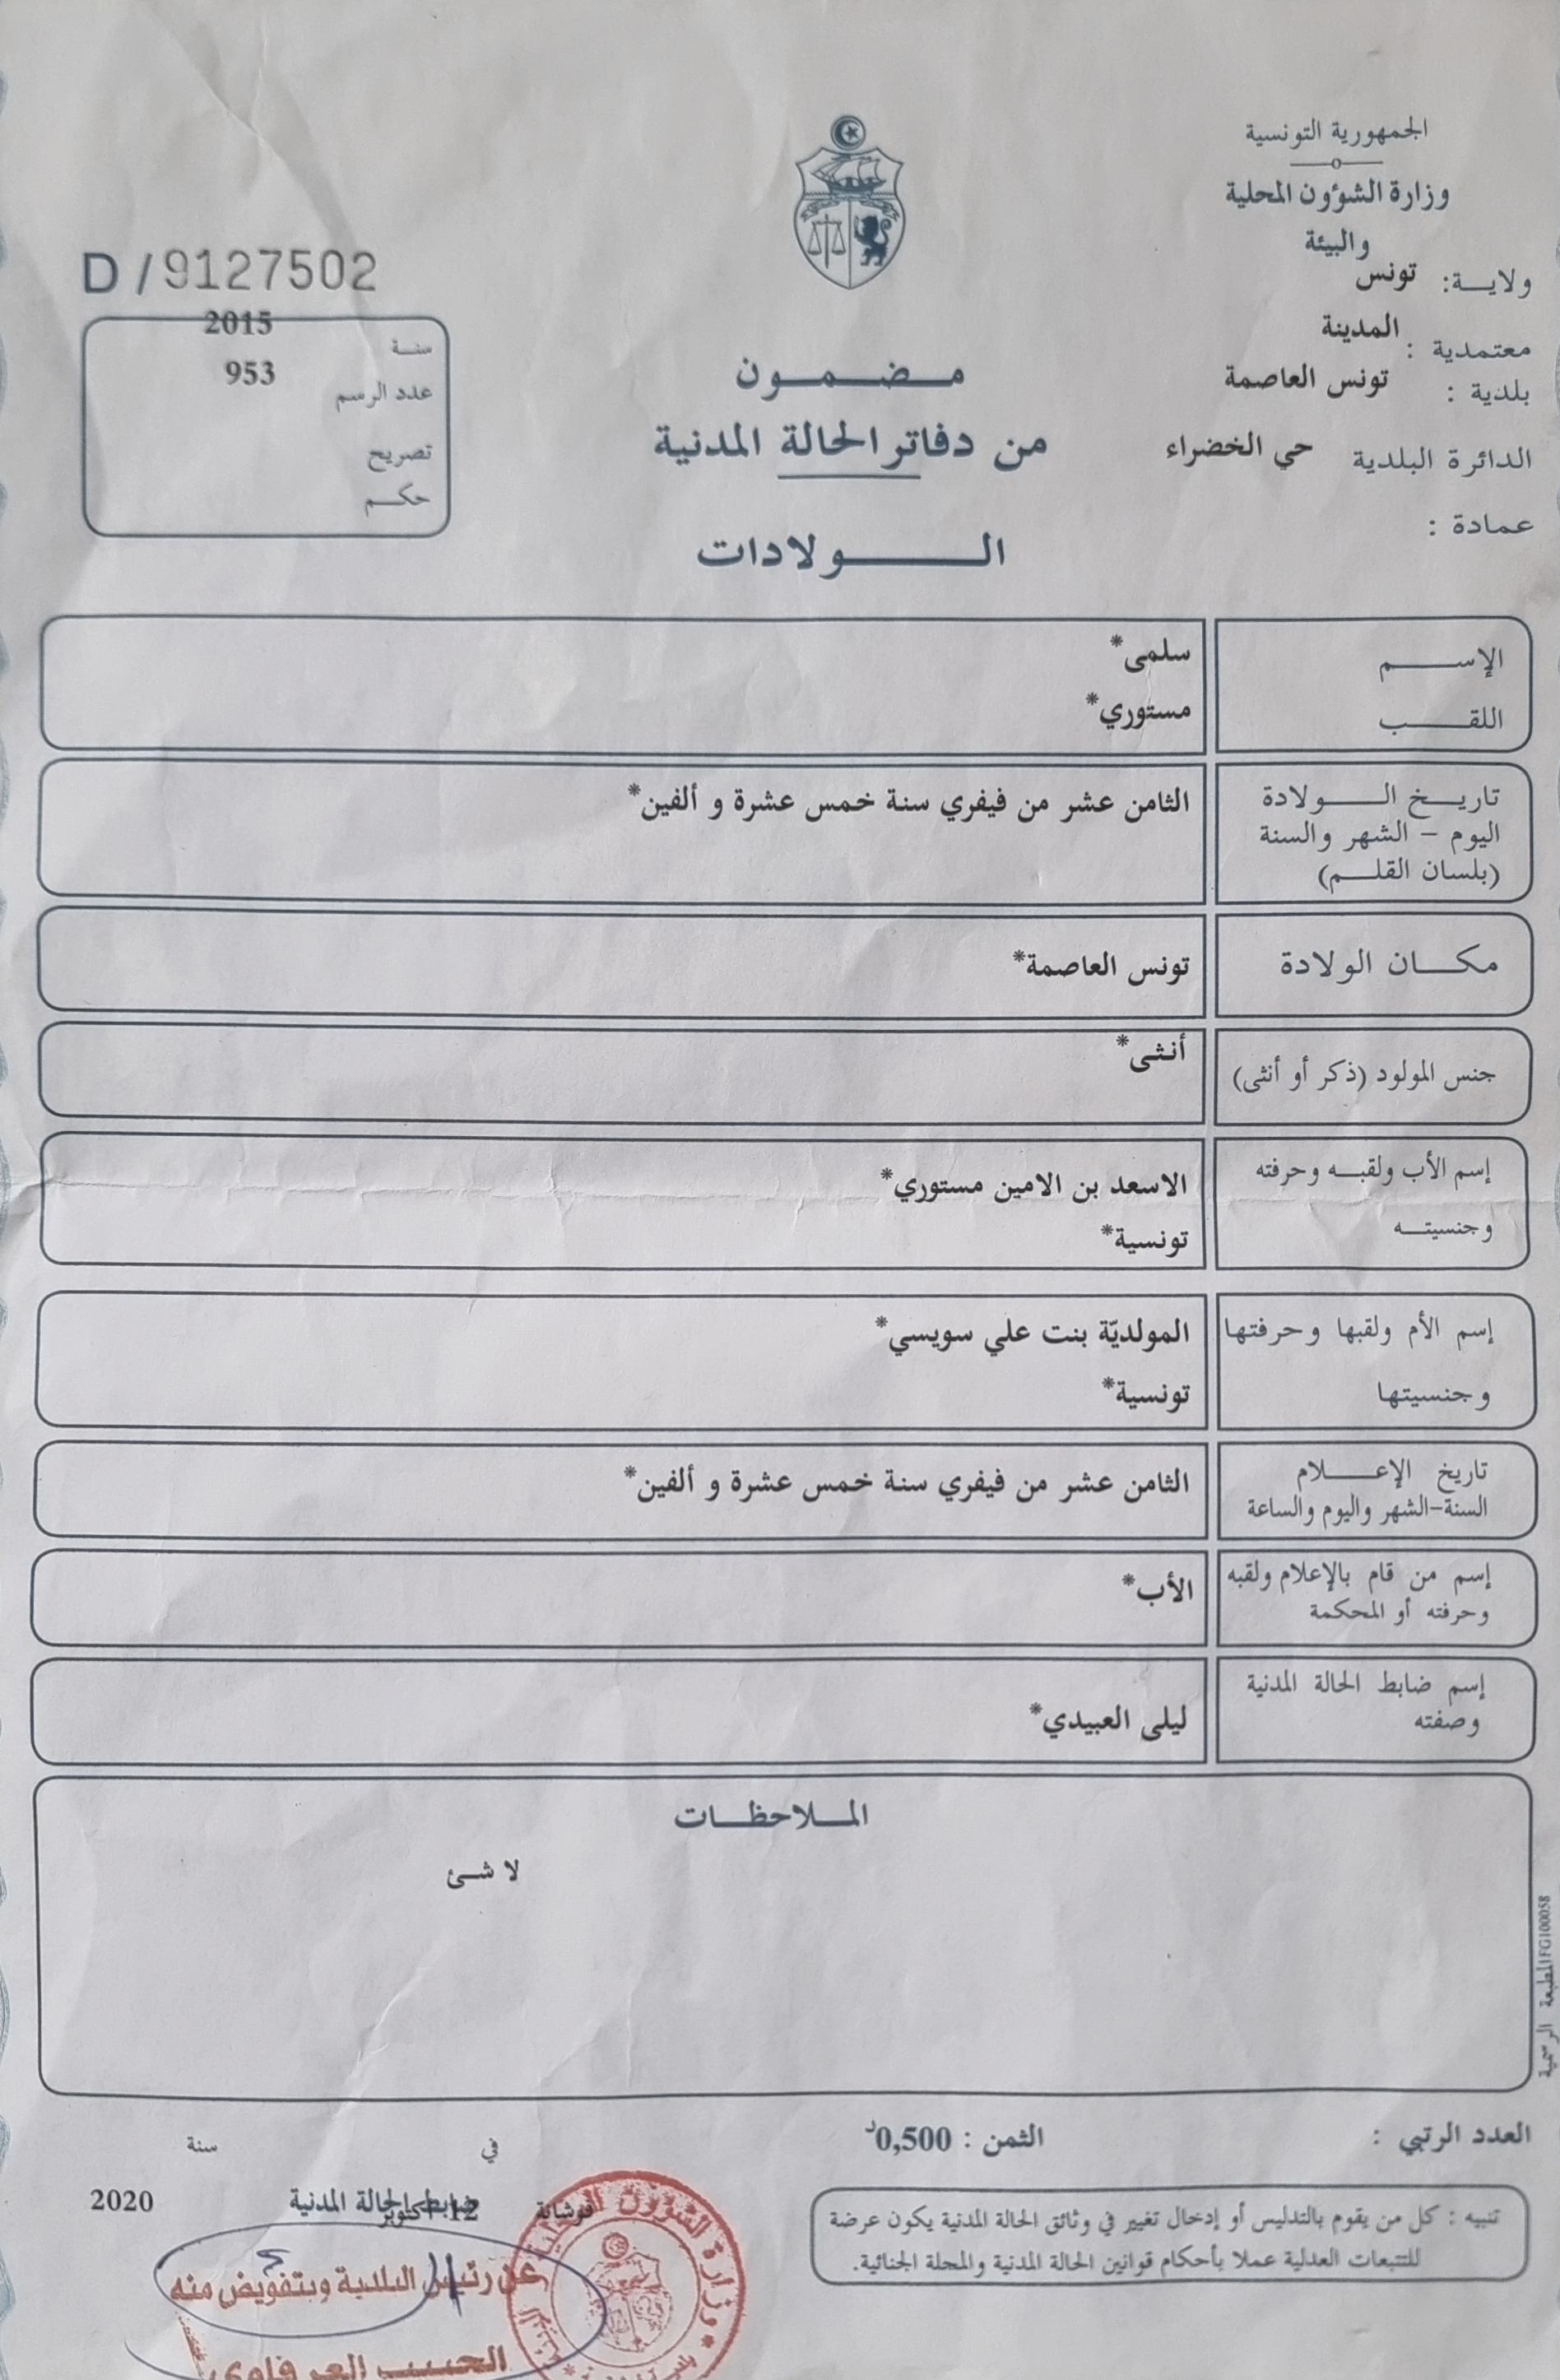 الجمهورية التونسية
وزارة الشؤون المحلية
والبيئة
ولاية: تونس
معتمدية : المدينة
بلدية : تونس العاصمة
الدائرة البلدية حي الخضراء
عمادة :
مضمون
من دفاتر الحالة المدنية
الولادات
D / 9127502
سنة 2015
عدد الرسم 953
تصريح
حكم
الإسم سلمى*
اللقب مستوري*
تاريخ الولادة الثامن عشر من فيفري سنة خمس عشرة و ألفين*
اليوم - الشهر والسنة
(بلسان القلم)
مكان الولادة تونس العاصمة*
جنس المولود (ذكر أو أنثى) أنثى*
إسم الأب ولقبه وحرفته الاسعد بن الامين مستوري*
وجنسيته تونسية*
إسم الأم ولقبها وحرفتها المولديّة بنت علي سويسي*
وجنسيتها تونسية*
تاريخ الإعلام الثامن عشر من فيفري سنة خمس عشرة و ألفين*
السنة-الشهر واليوم والساعة
إسم من قام بالإعلام ولقبه الأب*
وحرفته أو المحكمة
إسم ضابط الحالة المدنية ليلى العبيدي*
وصفته
الملاحظات
لا شئ
المطبعة الرسمية FG100058
العدد الرتبي : الثمن : 0,500د
في سنة
فوشانة 12 أكتوبر 2020
ضابط الحالة المدنية
تنبيه : كل من يقوم بالتدليس أو إدخال تغيير في وثائق الحالة المدنية يكون عرضة
للتتبعات العدلية عملا بأحكام قوانين الحالة المدنية والمجلة الجنائية.
عن رئيس البلدية وبتفويض منه
الحبيب العرفاوي
وزارة الشؤون المحلية